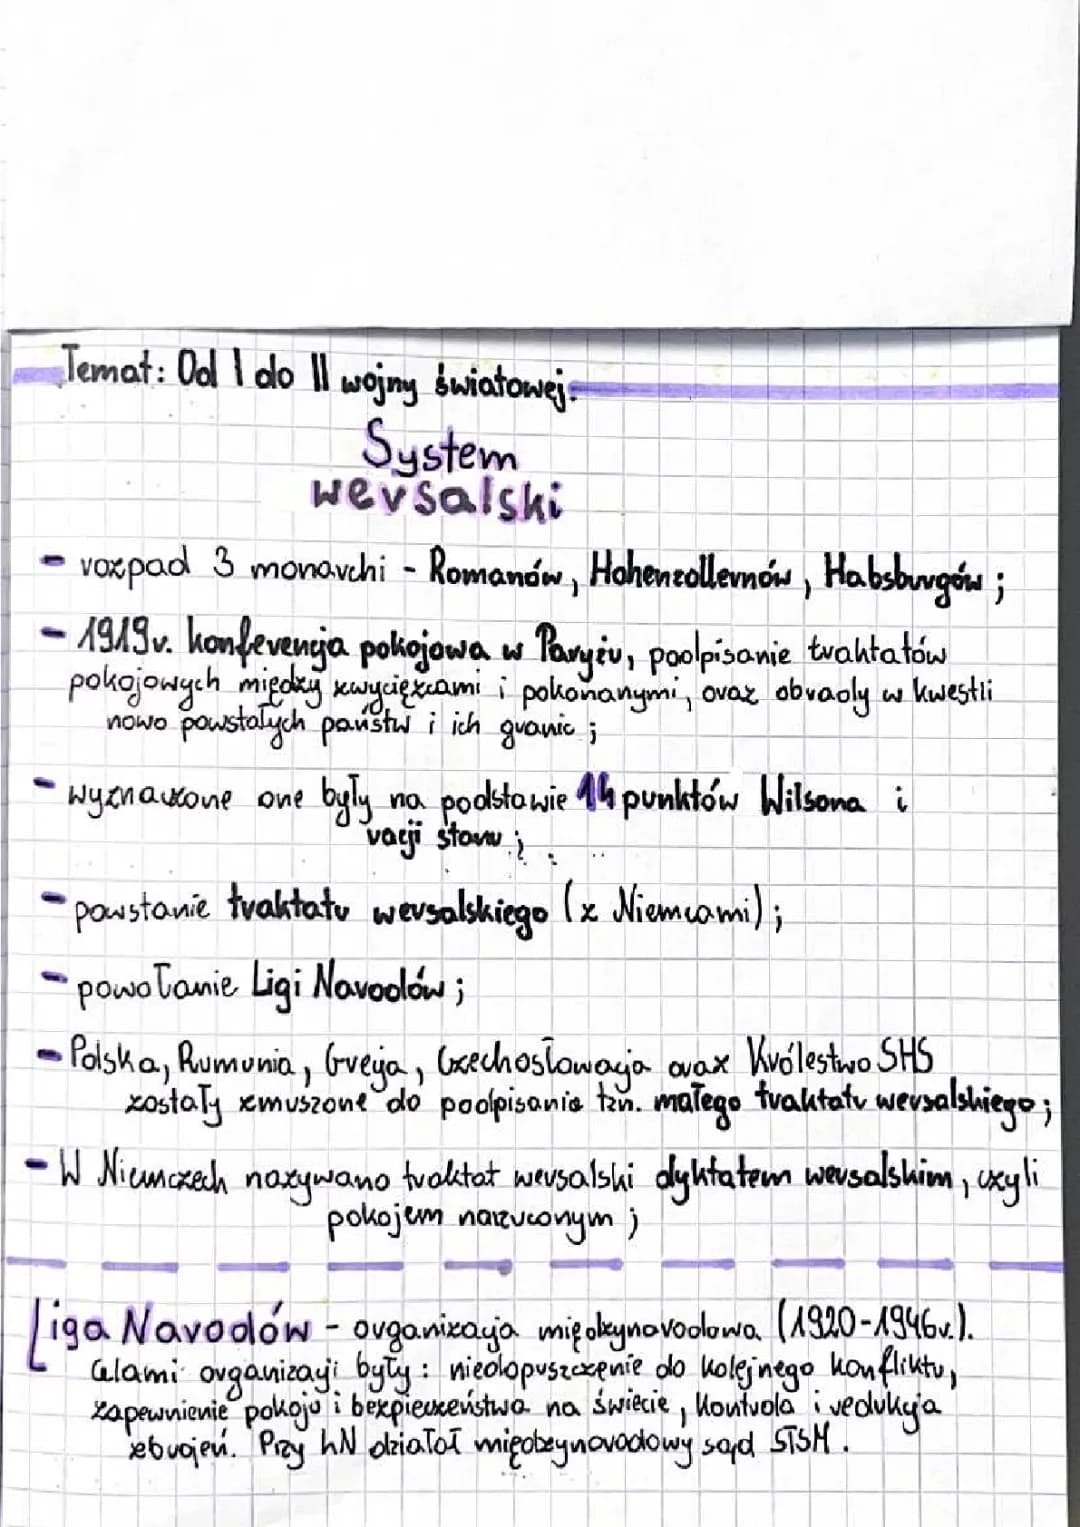 Temat: Od I do II wojny światowej.
System
wersalski
- rozpad 3 monarchi - Romanów, Hohenzollernów, Habsburgów;
- 1919r. konferencja pokojowa w Paryżu, podpisanie traktatów
pokojowych między zwycięzcami i pokonanymi, oraz obrady w kwestii
nowo powstałych państw i ich granic;
- wyznaczone one były na podstawie 14 punktów Wilsona i
racji stanu;
- powstanie traktatu wersalskiego (z Niemcami);
- powołanie Ligi Narodów;
- Polska, Rumunia, Grecja, Czechosłowacja oraz Królestwo SHS
zostały zmuszone do podpisania tzn. małego traktatu wersalskiego;
- W Niemczech nazywano traktat wersalski dyktatem wersalskim, czyli
pokojem narzuconym;
Liga Narodów - organizacja międzynarodowa (1920-1946r.).
Celami organizacji były: niedopuszczenie do kolejnego konfliktu,
zapewnienie pokoju i bezpieczeństwa na świecie, kontrola i redukcja
zbrojeń. Przy LN działał międzynarodowy sąd STSM.